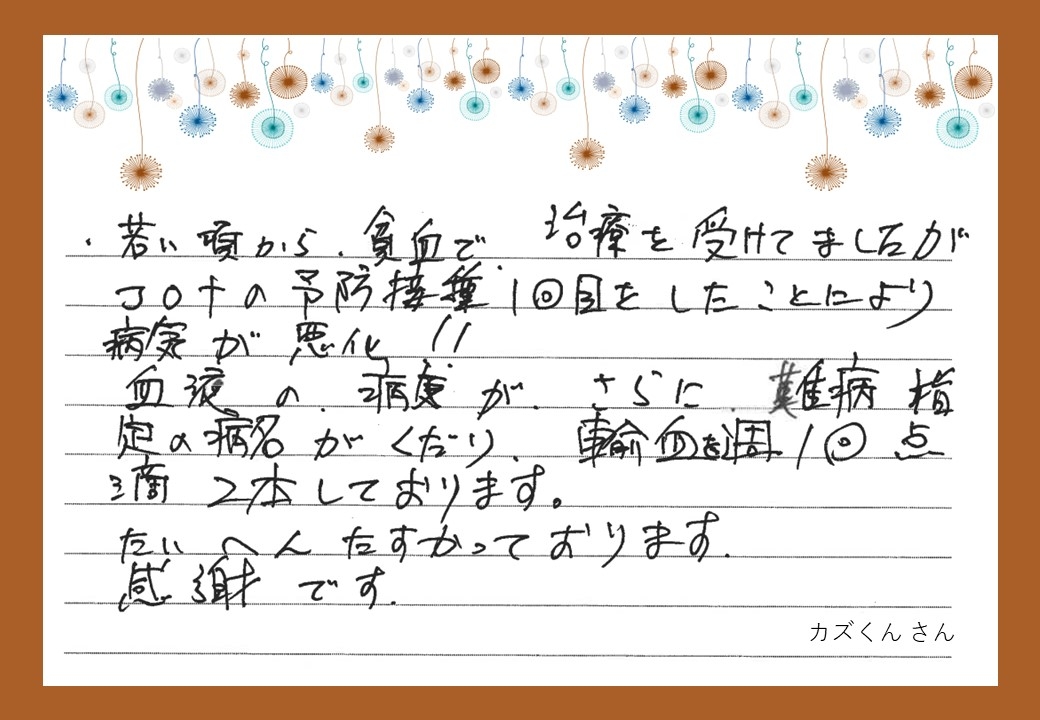 ・若い頃から、貧血で、治療を受けてましたが
コロナの予防接種1回目をしたことにより
病気が悪化!!
血液の、病気が、さらに、難病指
定の病名がくだり、輸血を週1回点
滴2本しております。
たいへんたすかっております。
感謝です。
カズくん さん